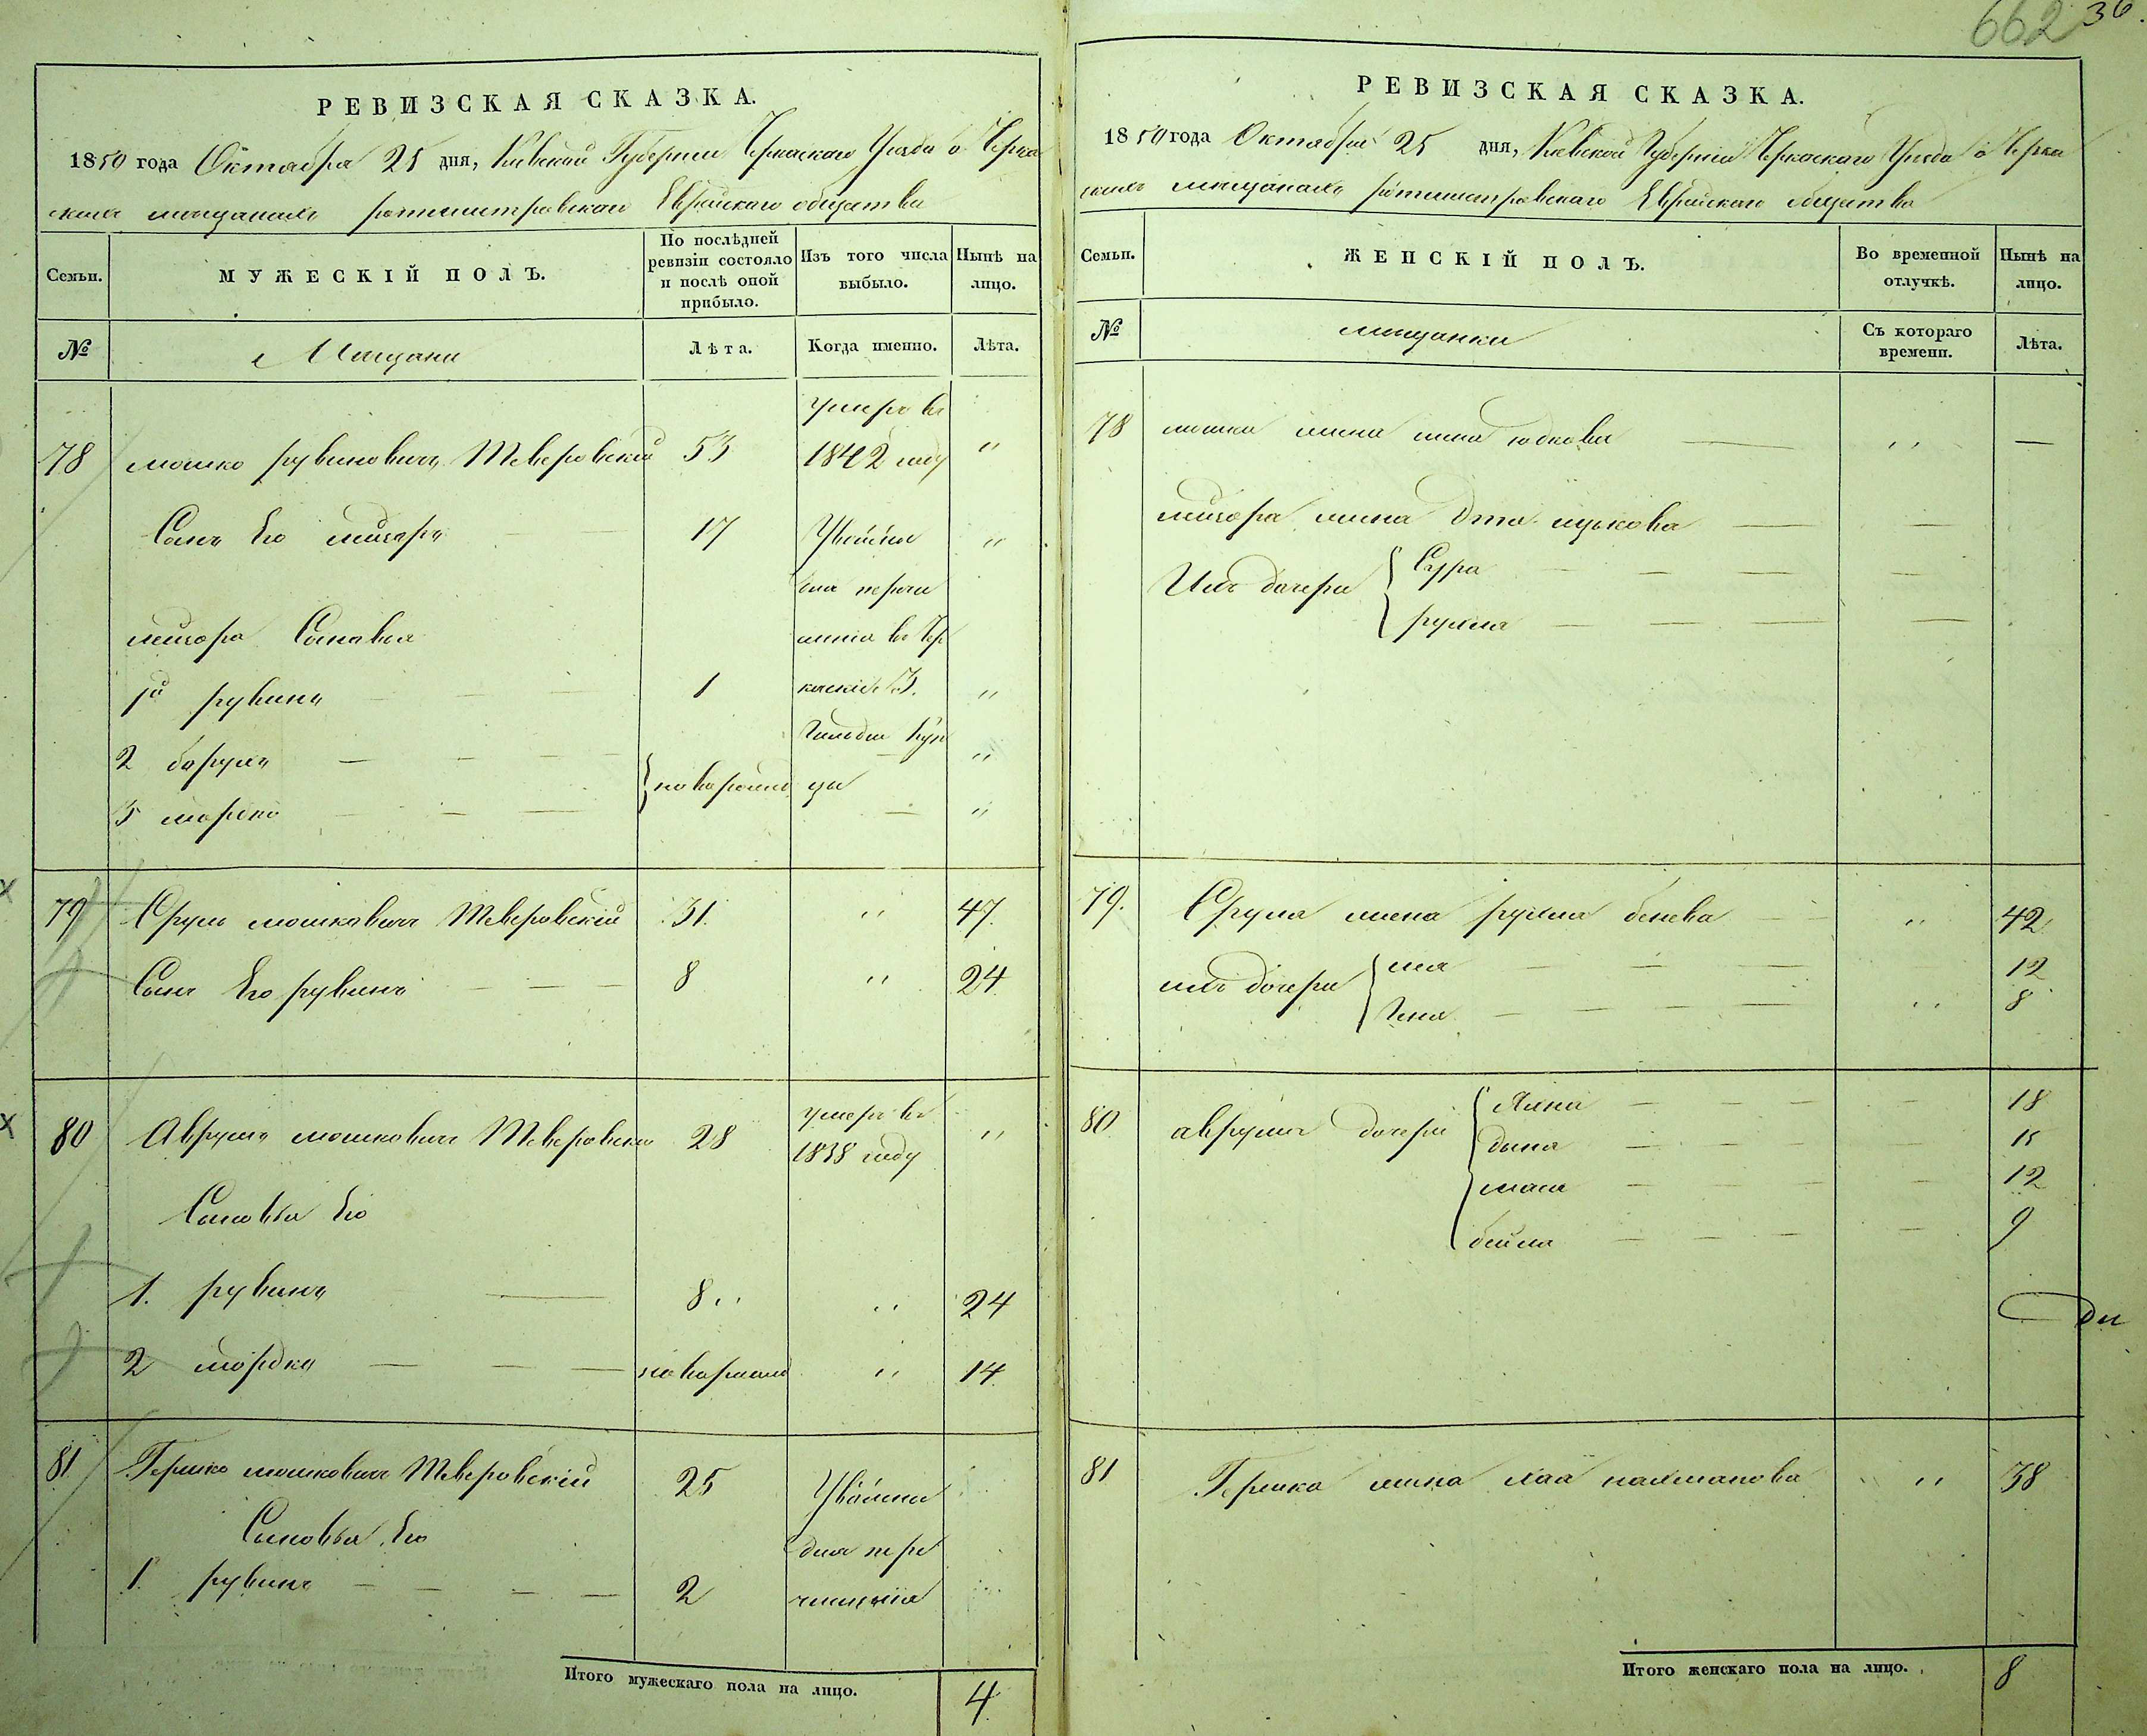 662 36.
РЕВИЗСКАЯ СКАЗКА.
1850 года Октября 25 дня, Кіевской Губерніи Черкаскаго Уѣзда о Черка
скихъ мещанахъ ротмистровскаго Еврейскаго общества
Семьи.
МУЖЕСКІЙ ПОЛЪ.
По послѣдней ревизіи состояло и послѣ оной прибыло.
Изъ того числа выбыло.
Нынѣ на лицо.
№
Мещани
Лѣта.
Когда именно.
Лѣта.
умеръ въ
78 мошко рувиновичъ Тверовскій 53 1842 году "
Сынъ Его 17 Уволены "
для перечи
Сыновья сленія въ Чер
1й рувинъ 1 каскіе 3. "
Гильдіи Куп
2 борухъ "
новорожд цы
3 "
79 Сруль мошковичъ Тверовскій 31. " 47.
Сынъ Его рувинъ 8 " 24
умеръ въ
80 Аврумъ мошковичъ Тверовскій 28 1838 году "
Сыновья Его
1. рувинъ 8 " " 24
2 мордко новорожд " 14
81 Гершко мошковичъ Тверовскій 25 Уволены
Сыновья Его для пере
1. рувинъ 2 численія
Итого мужескаго пола на лицо. 4
РЕВИЗСКАЯ СКАЗКА.
1850 года Октября 25 дня, Кіевской Губерніи Черкаскаго Уѣзда о Черка
скихъ мещанахъ ротмистровскаго Еврейскаго общества
Семьи.
ЖЕНСКІЙ ПОЛЪ.
Во временной отлучкѣ.
Нынѣ на лицо.
№
мещанки
Съ котораго времени.
Лѣта.
78 мошка жена юдкова " —
жена ицькова — —
Ихъ дочери { Сура — — — —
рухля — — — —
79. Сруля жена рухля бенева " 42
ихъ дочери { — — — 12
Гена — — — — " 8
80 аврума дочери { — — — — 18
дына — — — — 15
— — — — 12
бейла — — — — 9
81 Гершка жена лая нахманова " 38
Итого женскаго пола на лицо. 8